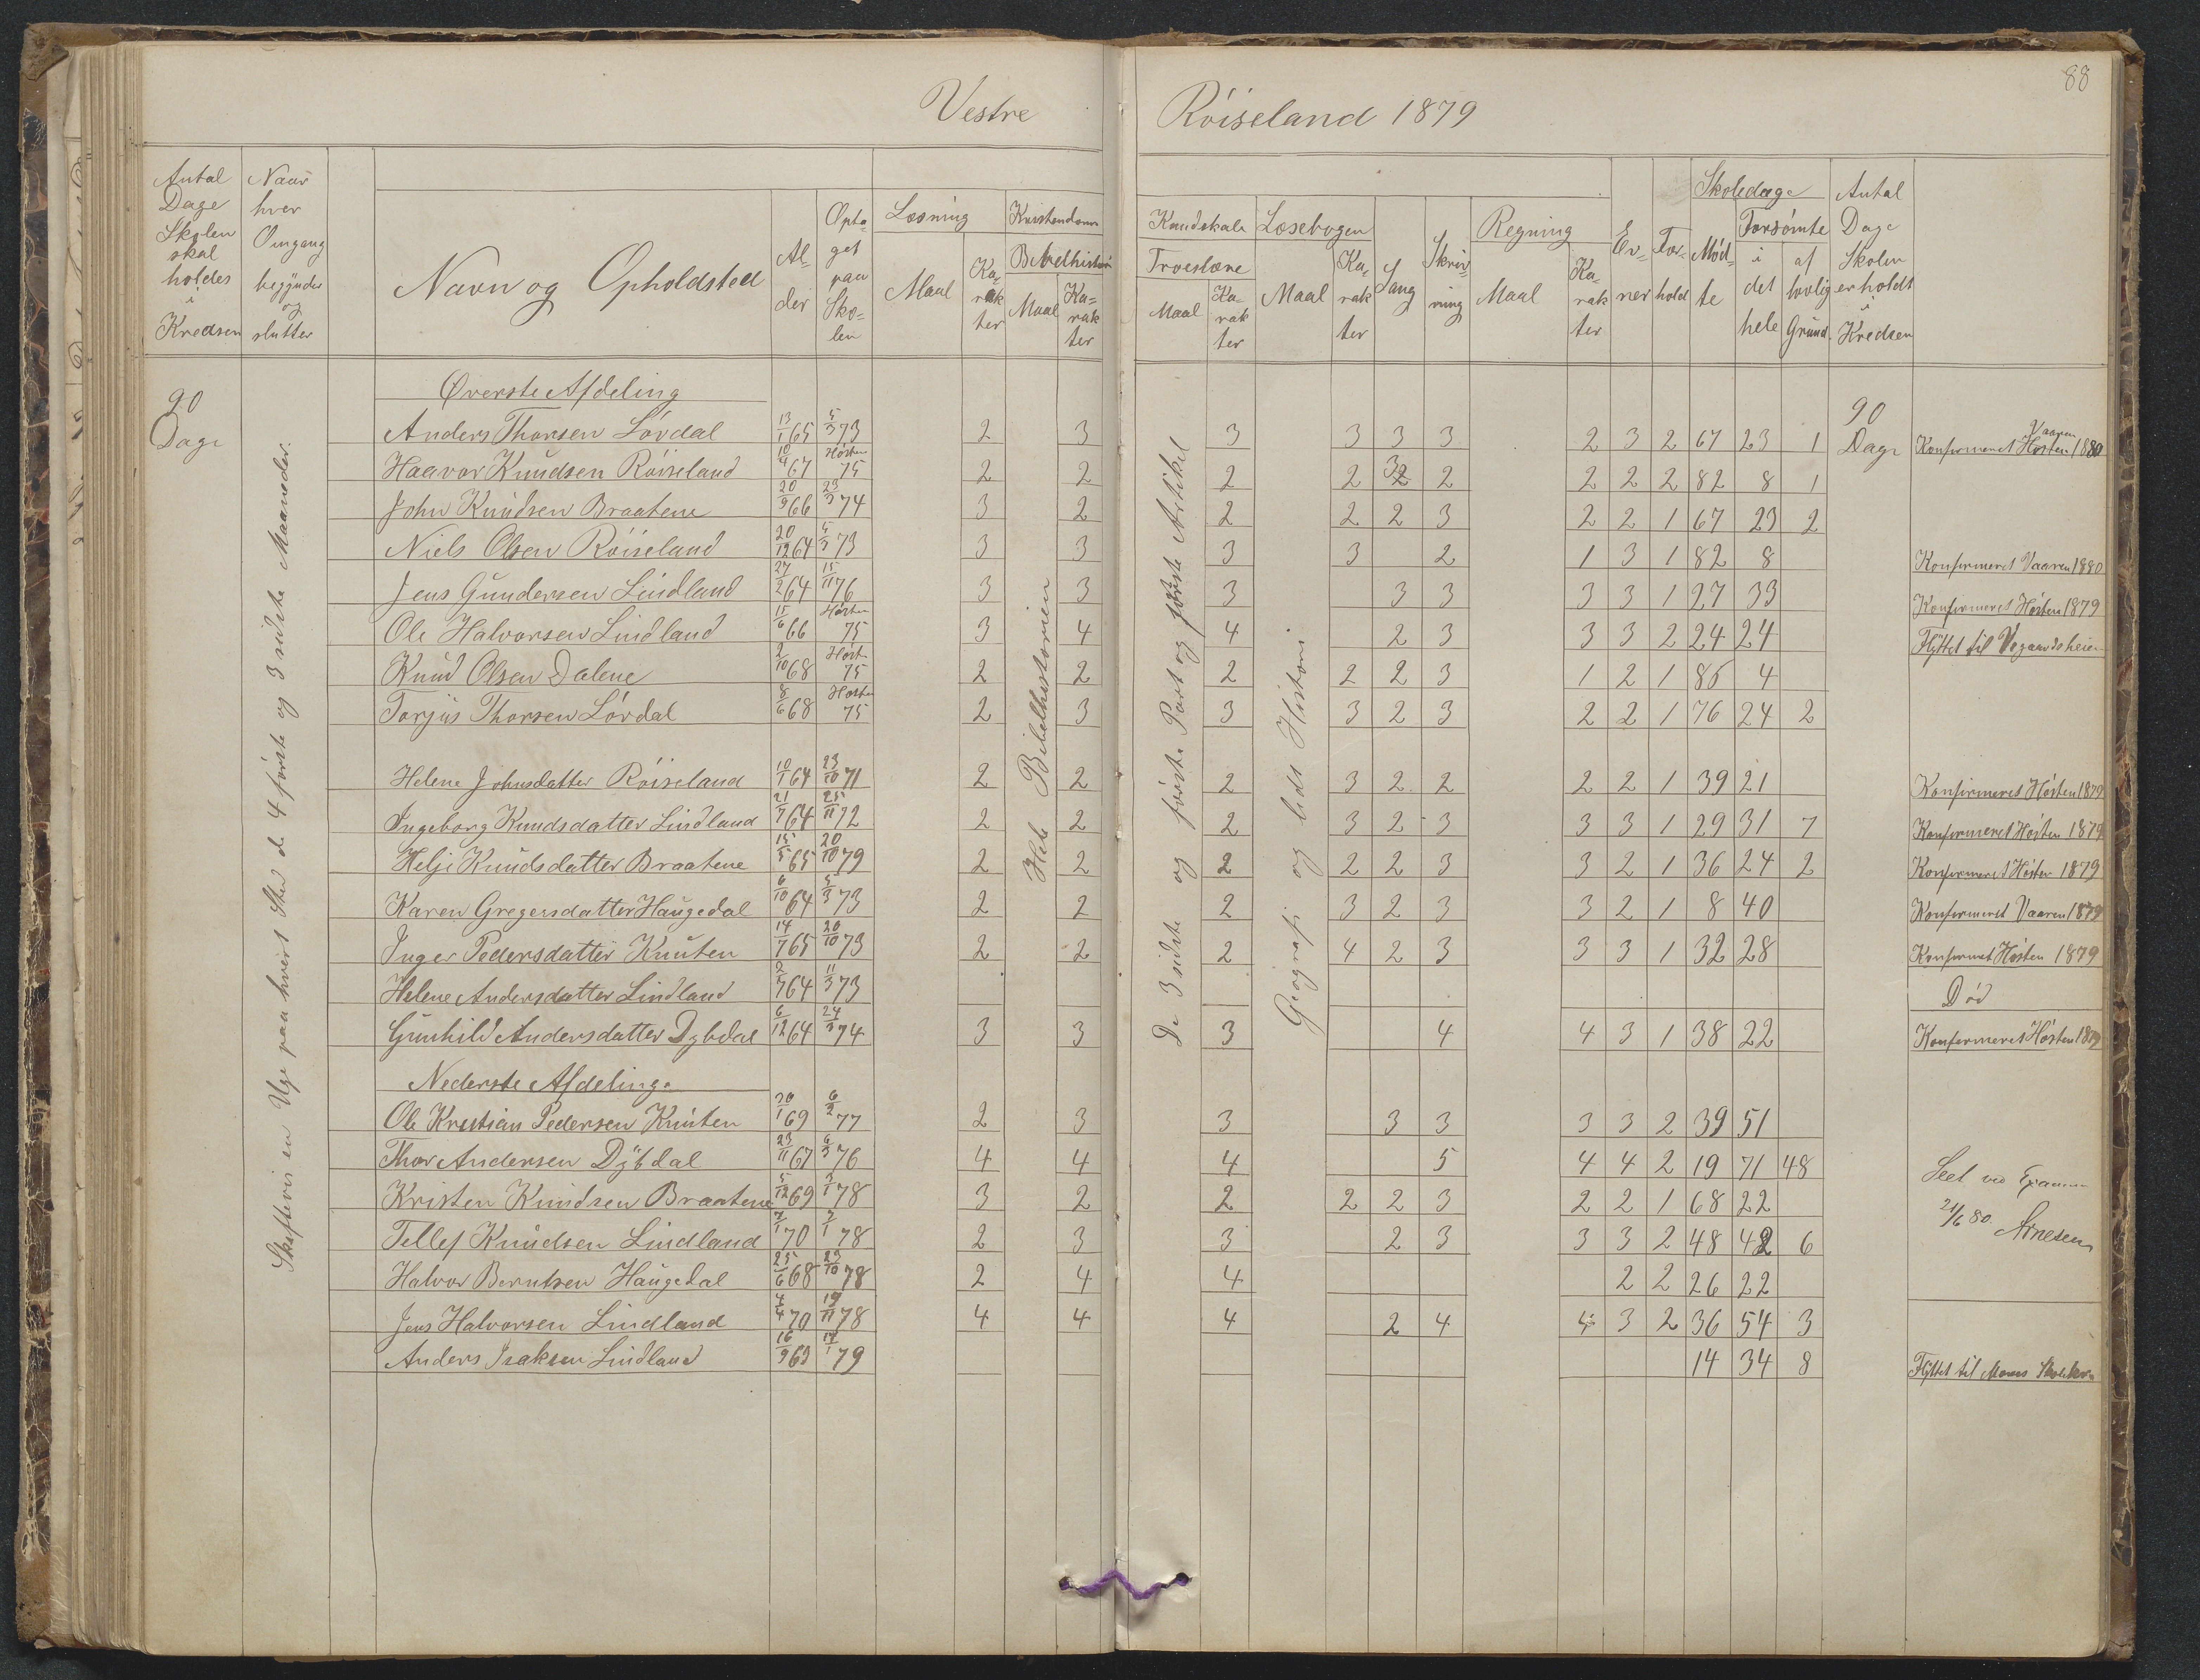 88
Vestre Röiseland 1879
Antal Dage Skolen skal holdes i Kredsen
Naar hver Omgang begynder og slutter
Navn og Opholdsted
Alder
Optaget paa Skolen
Læsning
Maal
Karakter
Kristendoms Kundskab
Bibelhistorie
Maal
Karakter
Troeslære
Maal
Karakter
Læsebogen
Maal
Karakter
Sang
Skrivning
Regning
Maal
Karakter
Evner
Forhold
Skoledage
Mødte
Forsömte
i det hele
af lovlig Grund
Antal Dage Skolen er holdt i Kredsen
90 Dage
Skiftevis en Uge paa hvert Sted de 4 første og 3 sidste Maaneder.
Hele Bibelhistorien
De 3 sidste og første Part og første Artikkel
Geografi og lidt Historie
90 Dage
Øverste Afdeling
Anders Thorsen Lövdal 13/1 65 5/3 73 2 3 3 3 3 3 2 3 2 67 23 1 Konfirmeret Høsten Vaaren 1880
Haavor Knudsen Röiseland 10/9 67 Høsten 75 2 2 2 2 2 2 2 2 2 82 8 1
John Knudsen Braatene 20/9 66 23/3 74 3 2 2 2 2 3 2 2 1 67 23 2
Niels Olsen Röiseland 20/12 64 5/3 73 3 3 3 3 2 1 3 1 82 8 Konfirmeret Vaaren 1880
Jens Gundersen Lindland 27/2 64 15/11 76 3 3 3 3 3 3 3 1 27 33 Konfirmeret Høsten 1879
Ole Halvorsen Lindland 15/6 66 Høsten 75 3 4 4 2 3 3 3 2 24 24 Flyttet til Vegaardsheien
Knud Olsen Dalene 2/10 68 Høst 75 2 2 2 2 2 3 1 2 1 86 4
Torjus Thorsen Lövdal 8/6 68 Høsten 75 2 3 3 3 2 3 2 2 1 76 24 2
Helene Johnsdatter Röiseland 10/1 64 23/10 71 2 2 2 3 2 2 2 2 1 39 21 Konfirmeret Høsten 1879
Ingeborg Knudsdatter Lindland 21/7 64 25/11 72 2 2 2 3 2 3 3 3 1 29 31 7 Konfirmeret Høsten 1879
Helje Knudsdatter Braatene 15/5 65 20/10 79 2 2 2 2 2 3 3 2 1 36 24 2 Konfirmeret Høsten 1879
Karen Gregersdatter Haugedal 6/10 64 5/3 73 2 2 2 3 2 3 3 2 1 8 40 Konfirmeret Vaaren 1879
Inger Pedersdatter Knuten 14/7 65 20/10 73 2 2 2 4 2 3 3 3 1 32 28 Konfirmet Høsten 1879
Helene Andersdatter Lindland 64 11/3 73 Död
Gunhild Andersdatter Dybdal 6/12 64 24/3 74 3 3 3 4 4 3 1 38 22 Konfirmeret Høsten 1879
Nederste Afdeling.
Ole Kristian Pedersen Knuten 30/1 69 6/2 77 2 3 3 3 3 3 3 2 39 51
Thor Andersen Dybdal 23/11 67 6/3 76 4 4 4 5 4 4 2 19 71 48
Kristen Knudsen Braatene 5/12 69 2/1 78 3 2 2 2 2 3 2 2 1 68 22
Tellef Knudsen Lindland 7/1 70 7/1 78 2 3 3 2 3 3 3 2 48 42 6
Halvor Berntsen Haugedal 25/6 68 23/10 78 2 4 4 2 2 26 22
Jens Halvorsen Lindland 4/4 70 19/11 78 4 4 4 2 4 4 3 2 36 54 3
Anders Isaksen Lindland 16/9 69 14/1 79 14 34 8 Flyttet til Moens Skolekr.
Seet ved Examen
21/6 80. Arnesen